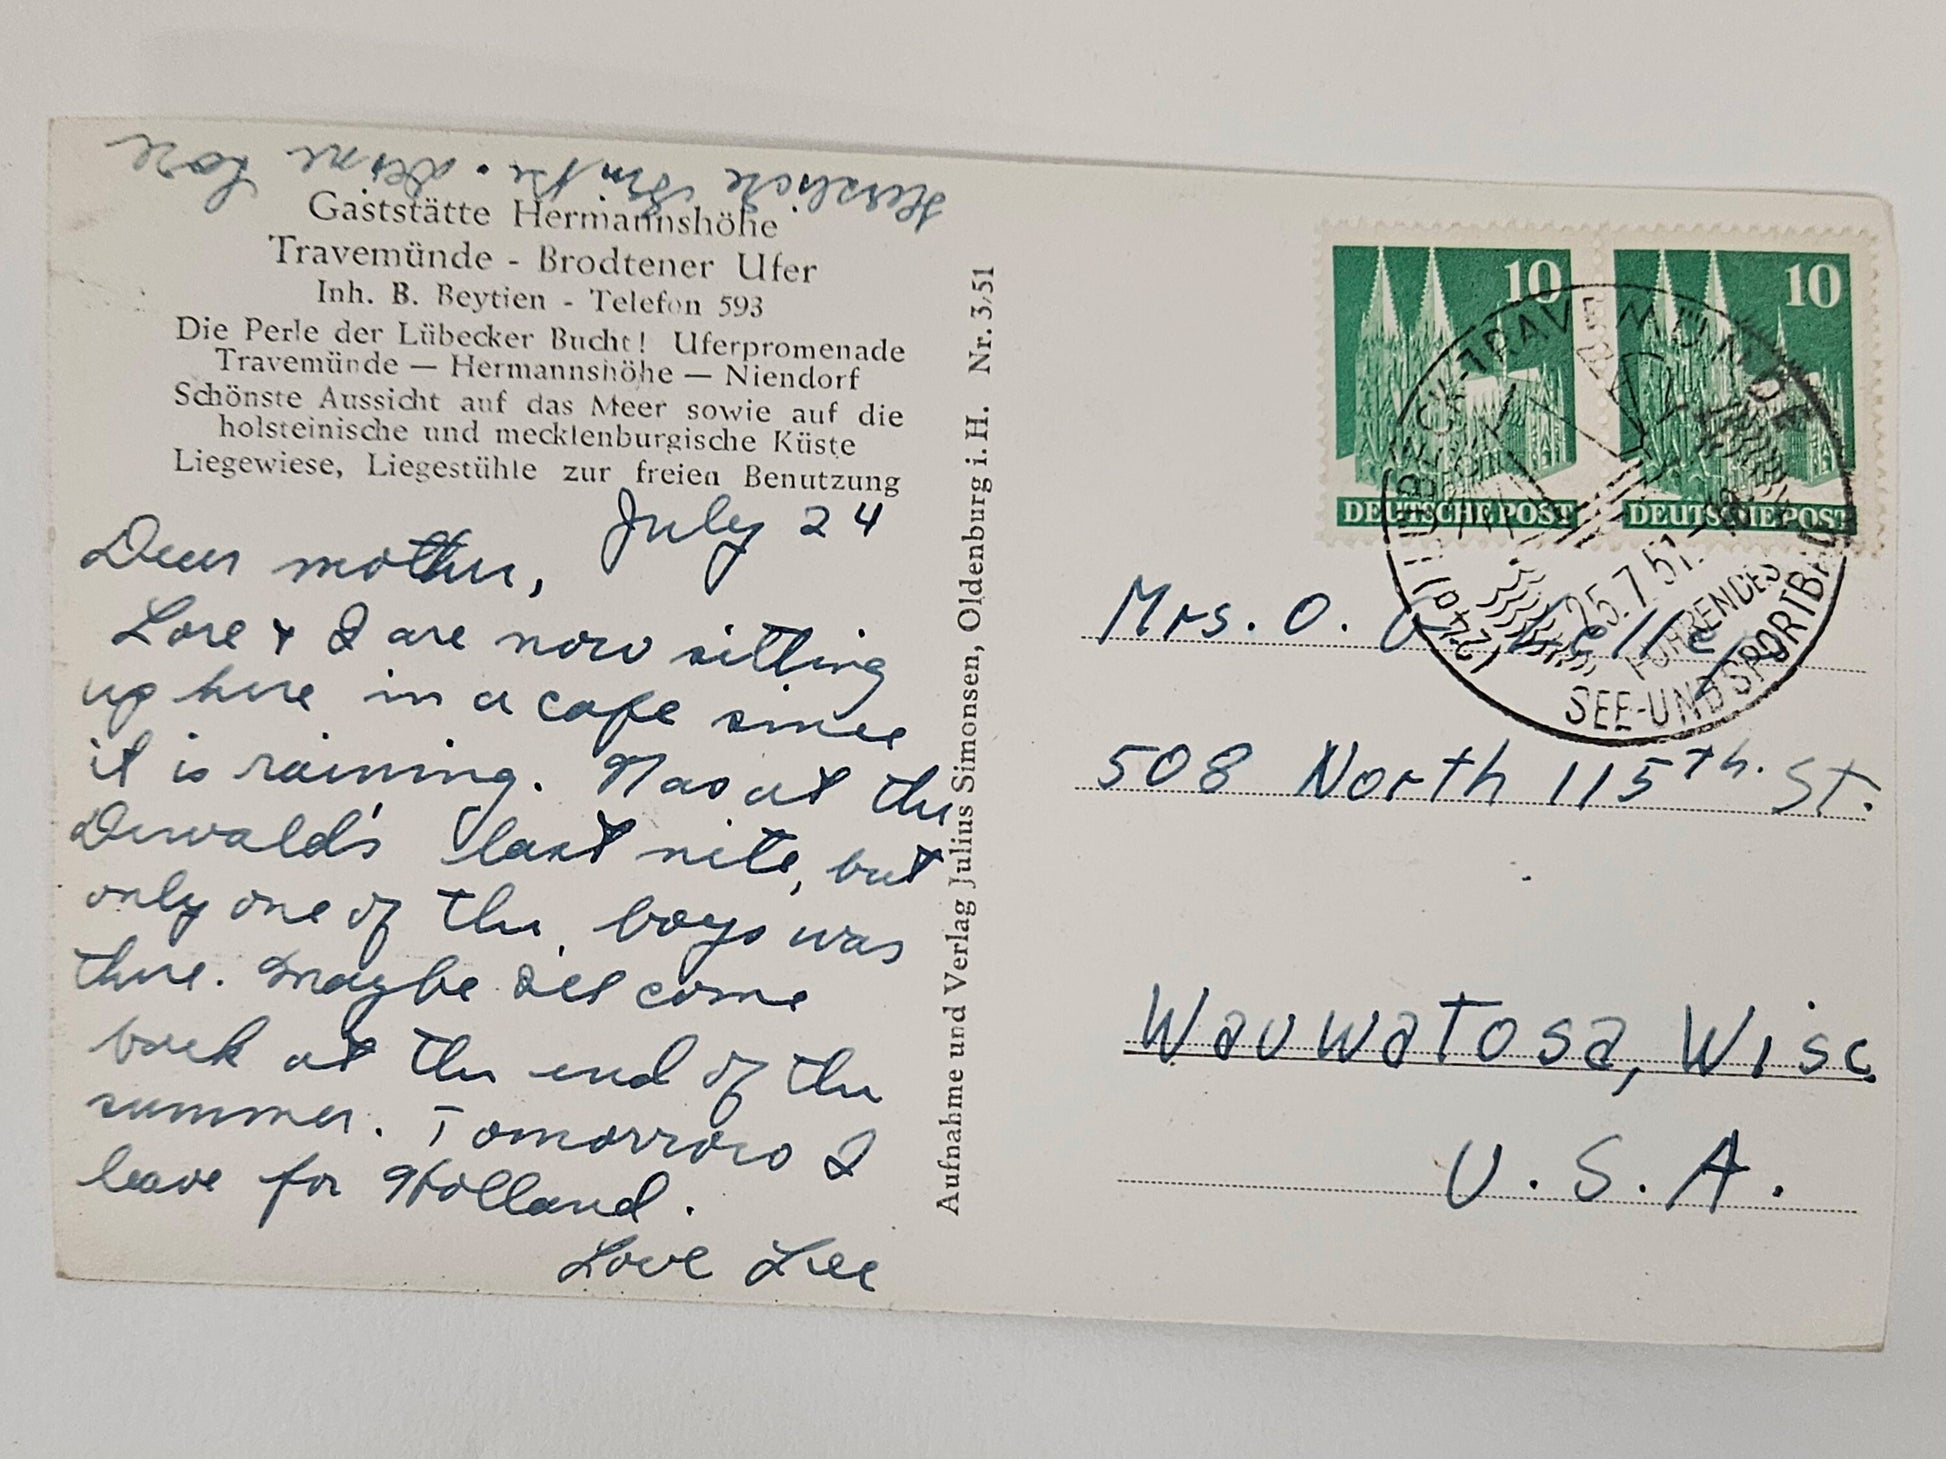 Herzliche Grüße. deine Lore
Gaststätte Hermannshöhe
Travemünde - Brodtener Ufer
Inh. B. Beytien - Telefon 593
Die Perle der Lübecker Bucht! Uferpromenade
Travemünde — Hermannshöhe — Niendorf
Schönste Aussicht auf das Meer sowie auf die
holsteinische und mecklenburgische Küste
Liegewiese, Liegestühle zur freien Benutzung
July 24
Dear mother,
Lore & I are now sitting
up here in a cafe since
it is raining. Was at the
Dewald's last nite, but
only one of the boys was
there. Maybe I'll come
back at the end of the
summer. Tomorrow I
leave for Holland.
Love Lee
Aufnahme und Verlag Julius Simonsen, Oldenburg i. H. Nr. 3/51
10
DEUTSCHE POST
10
DEUTSCHE POST
(24a) LÜBECK-TRAVEMÜNDE
25.7.51
FÜHRENDES
SEE-UND SPORTBAD
Mrs. O.
508 North 115th. St.
Wauwatosa, Wisc
U.S.A.